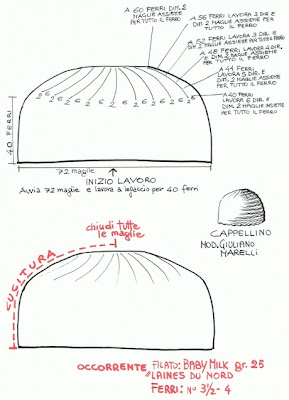 A 60 FERRI DIM. 2
MAGLIE ASSIEME
PER TUTTO IL FERRO
A 56 FERRI LAVORA 2 DIR. E
DIM 2 MAGLIE ASSIEME PER
TUTTO IL FERRO
A 52 FERRI LAVORA 3 DIR. E
DIM. 2 MAGLIE ASSIEME PER TUTTO IL FERRO
A 48 FERRI LAVORA 4 DIR.
E DIM. 2 MAGLIE ASSIEME
PER TUTTO IL FERRO
A 44 FERRI
LAVORA 5 DIR. E
DIM. 2 MAGLIE ASSIEME
PER TUTTO IL FERRO
A 40 FERRI
LAVORA 6 DIR. E
DIM. 2 MAGLIE INSIEME
PER TUTTO IL FERRO
40 FERRI
72 maglie
INIZIO LAVORO
Avvia 72 maglie e lavora a legaccio per 40 ferri
CAPPELLINO
MOD. GIULIANO
MARELLI
chiudi tutte
le maglie
CUCITURA
OCCORRENTE FILATO: BABY MILK gr. 25
"LAINES DU NORD
FERRI: N° 3½ - 4